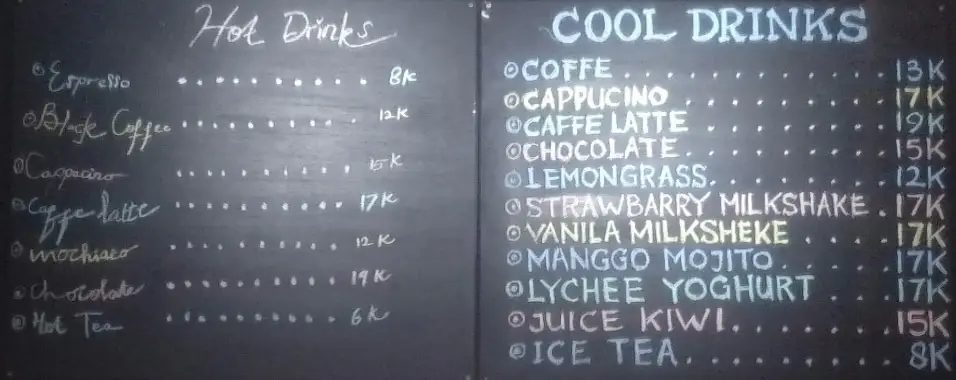 Hot Drinks
Espresso .......... 8K
Black Coffee .......... 12K
Cappucino .......... 15K
Caffe latte .......... 17K
.......... 12K
Chocolate .......... 19K
Hot Tea .......... 6K
COOL DRINKS
COFFE .......... 13K
CAPPUCINO .......... 17K
CAFFE LATTE ......... 19K
CHOCOLATE .......... 15K
LEMONGRASS ......... 12K
STRAWBARRY MILKSHAKE . 17K
VANILA MILKSHEKE .... 17K
MANGGO MOJITO .... 17K
LYCHEE YOGHURT ... 17K
JUICE KIWI ....... 15K
ICE TEA ......... 8K